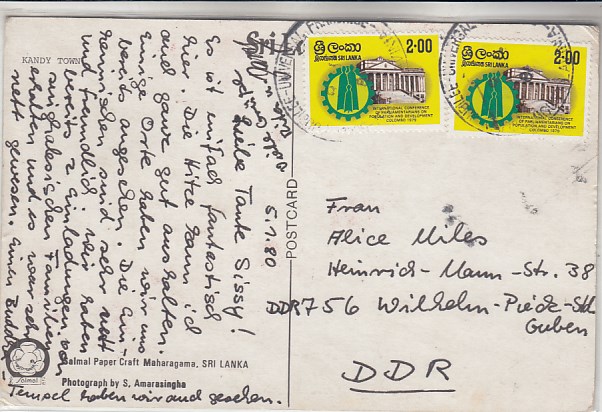 KANDY TOWN
SRI
ශ්‍රී ලංකා
SRI LANKA
2-00
INTERNATIONAL CONFERENCE
OF PARLIAMENTARIANS ON
POPULATION AND DEVELOPMENT
COLOMBO 1979
ශ්‍රී ලංකා
SRI LANKA
2-00
INTERNATIONAL CONFERENCE
OF PARLIAMENTARIANS ON
POPULATION AND DEVELOPMENT
COLOMBO 1979
5.1.80
Liebe Tante Sissy!
Es ist einfach fantastisch
hier. Die Hitze kann ich
auch ganz gut aushalten.
Einige Orte haben wir uns
bereits gesehen. Die Ein-
heimischen sind sehr nett
und freundlich, wir haben
bereits 2 Einladungen von
singhalesischen Familien
erhalten und es war sehr
nett gewesen. Einen Buddha-
Tempel haben wir auch gesehen.
POSTCARD
Frau
Alice Miles
Heinrich-Mann-Str. 38
DDR 756 Wilhelm-Pieck-Std
Guben
DDR
Salmal
Salmal Paper Craft Maharagama, SRI LANKA
Photograph by S, Amarasingha